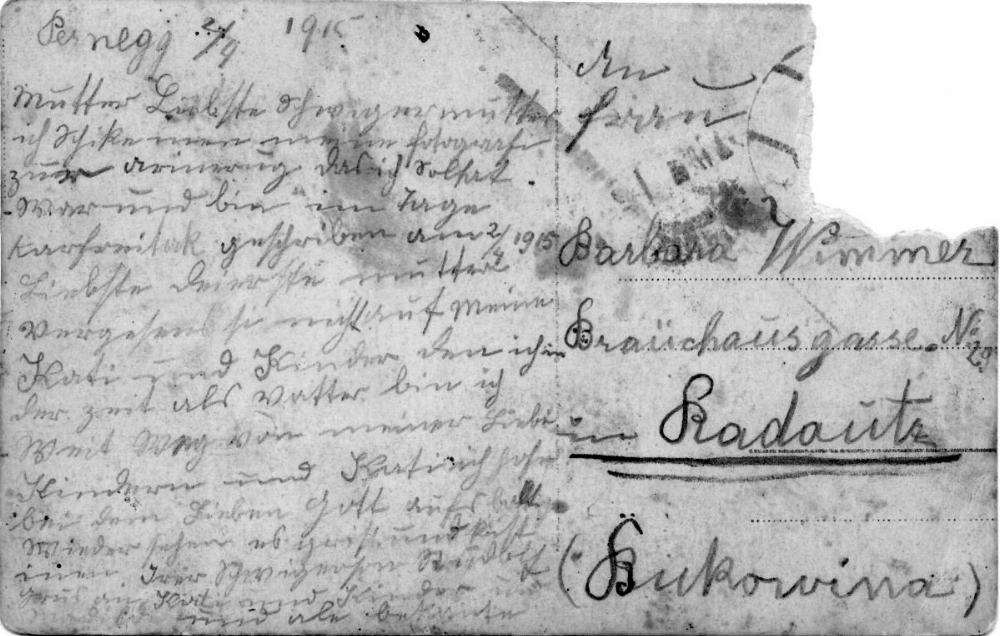 Pernegg 2/4 1915
Mutter Liebste Schwigermutter
ich Schike inen meine fotografi
zuur erinerug das ich Soltat
War und bin im Tage
Karfreitak geschriben am 2/ 1915
Liebste teierste mutter
Vergesens si nicht auf meine
Kati und Kinder den ich in
der zeit als vatter bin ich
Weit Weg von meiner Liebe
Kindern und Kati ich hofe
bei dem Lieben Gott aufs balt
Wieder sehen es grist und kist
inen Irer Schwigerson Rudolf
Grus an Kati und Kinder
und ale bekante
An
Frau
Barbara Wimmer
Bräuhausgasse No 29
in Radautz
(Bukowina)